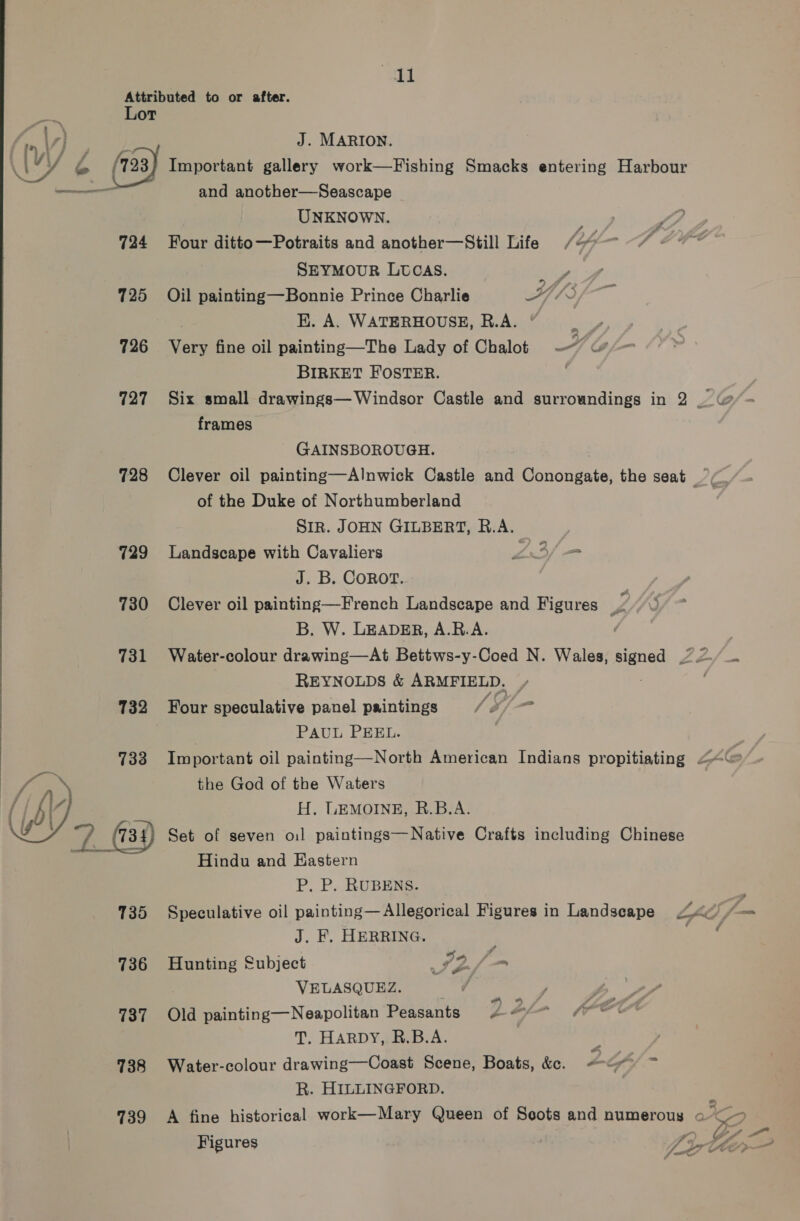 11
Attributed to or after.
Lot
J. MARION.
6 723 Important gallery work—Fishing Smacks entering Harbour
and another—Seascape
UNKNOWN.
724 Four ditto—Potraits and another—Still Life
SEYMOUR LUCAS.
725 Oil painting—Bonnie Prince Charlie
E. A. WATERHOUSE, R.A.
726 Very fine oil painting—The Lady of Chalot
BIRKET FOSTER.
727 Six small drawings—Windsor Castle and surroundings in 2
frames
GAINSBOROUGH.
728 Clever oil painting—Alnwick Castle and Conongate, the seat
of the Duke of Northumberland
SIR. JOHN GILBERT, R.A.
729 Landscape with Cavaliers
J. B. COROT.
730 Clever oil painting—French Landscape and Figures
B. W. LEADER, A.R.A.
731 Water-colour drawing—At Bettws-y-Coed N. Wales, signed 22/-
REYNOLDS & ARMFIELD.
732 Four speculative panel paintings
PAUL PEEL.
733 Important oil painting—North American Indians propitiating
the God of the Waters
H. LEMOINE, R.B.A.
7 734 Set of seven oil paintings—Native Crafts including Chinese
Hindu and Eastern
P. P. RUBENS.
735 Speculative oil painting—Allegorical Figures in Landscape
J. F. HERRING.
736 Hunting Subject
VELASQUEZ.
737 Old painting—Neapolitan Peasants
T. HARDY, R.B.A.
738 Water-colour drawing—Coast Scene, Boats, &c.
R. HILLINGFORD.
739 A fine historical work—Mary Queen of Scots and numerous
Figures